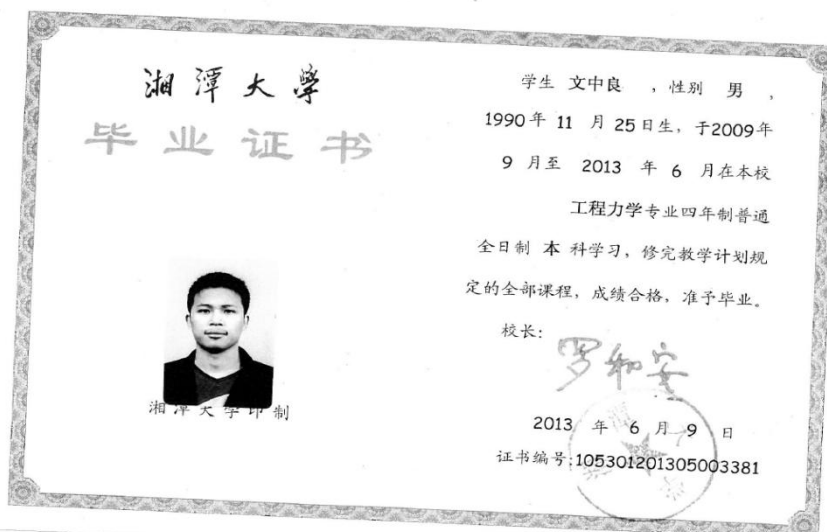 湘潭大學
毕业证书
湘潭大学印制
学生 文中良 ，性别 男 ，
1990年 11 月 25日生，于2009年
9 月至 2013 年 6 月在本校
工程力学专业四年制普通
全日制 本 科学习，修完教学计划规
定的全部课程，成绩合格，准予毕业。
校长：
罗和安
2013 年 6 月 9 日
证书编号:105301201305003381